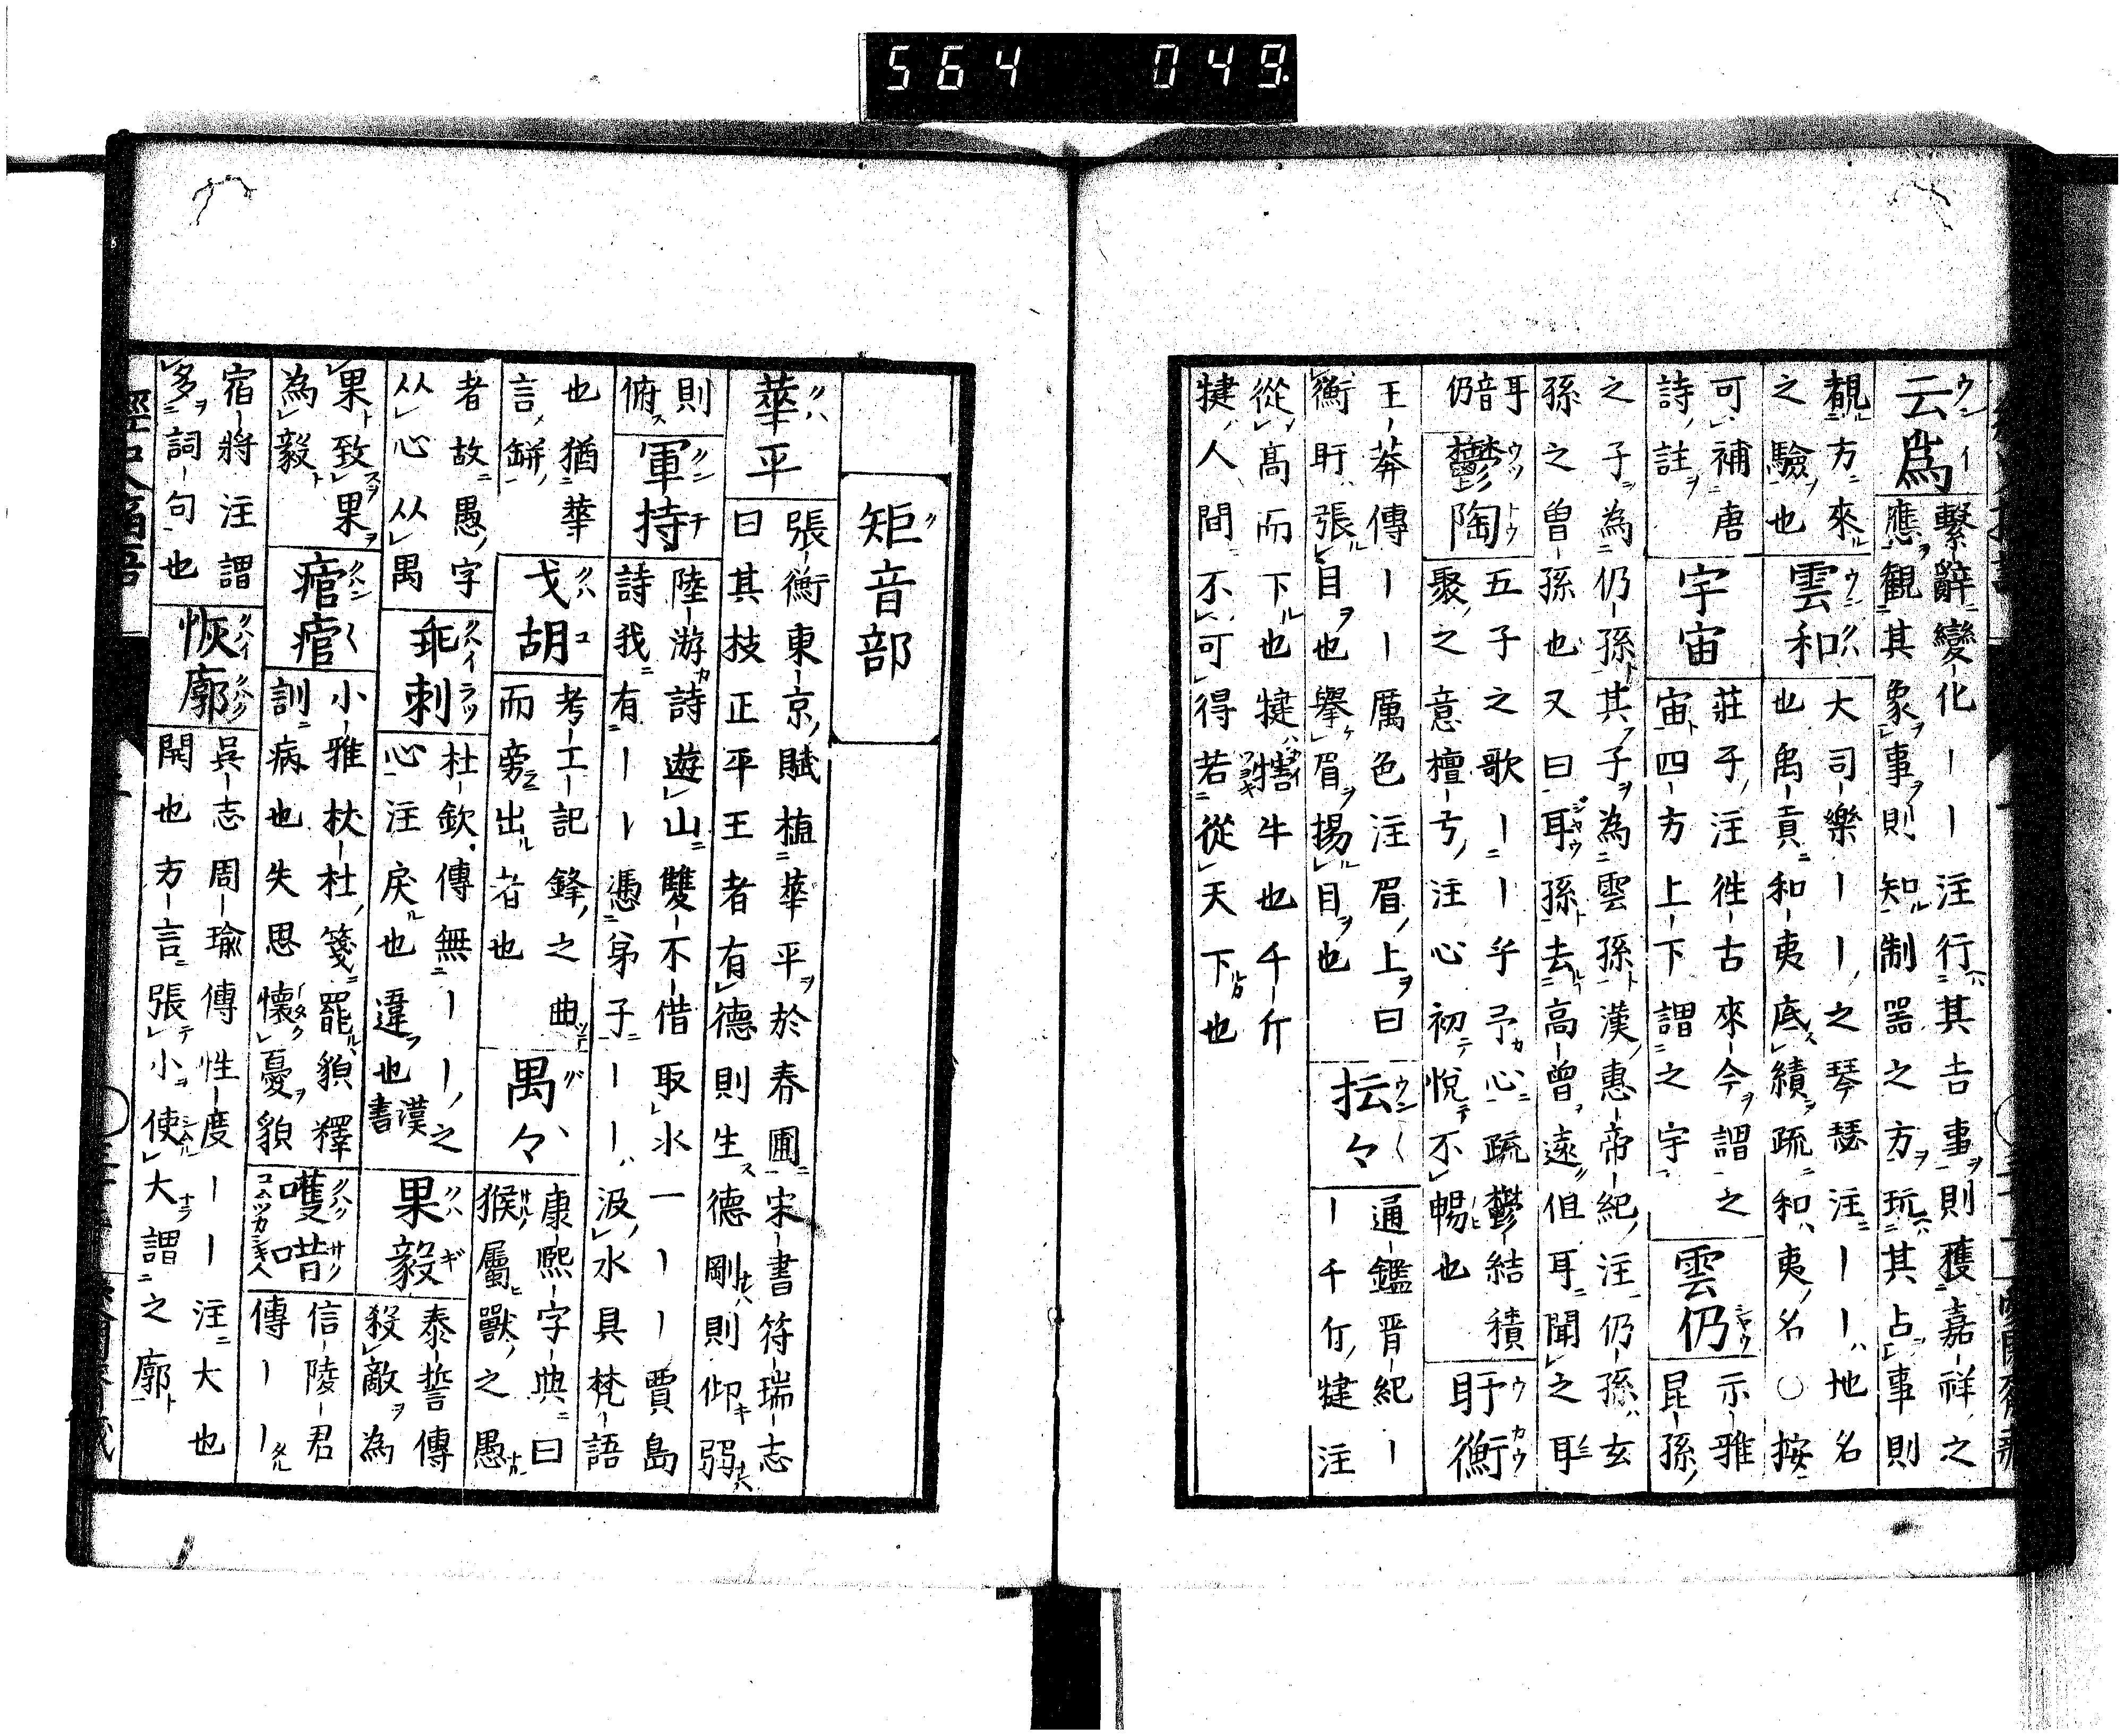 564 049
云為
繫辭變化ーー注行其吉事則獲嘉祥之
應觀其象事則知制器之方玩其占事則
覩方來
之驗也
雲和
大司樂ーー之琴瑟注ーー地名
也禹貢和夷底績疏和夷名○按
可補唐
詩註
宇宙
莊子注往古來今謂之
宙四方上下謂之宇
雲仍
示雅
昆孫
之子為仍孫其子為雲孫漢惠帝紀注仍孫玄
孫之曾孫也又曰耳孫去高曾遠但耳聞之耳
耳音
仍
鬱陶
五子之歌ーー乎予心疏鬱結積
聚之意檀弓注心初悅不暢也
盱衡
王莽傳ーー厲色注眉上曰
衡盱張目也舉眉揚目也
抎々
通鑑晋紀ー
ー千斤犍注
從高而下也犍犗牛也千斤
犍人間不可得若從天下也
矩音部
華平
張衡東京賦植華平於春圃宋書符瑞志
曰其技正平王者有德則生德剛則仰弱
則
俯
軍持
陸游詩遊山雙不借取水一ーー賈島
詩我有ーー憑弟子ーー汲水具梵語
也猶華
言缾
戈胡
考工記鋒之曲
而旁出者也
禺々
康熙字典曰
猴屬獸之愚
者故愚字
从心从禺
乖刺
杜欽傳無ーー之
心注戾也違也漢書
果毅
泰誓傳
殺敵為
果致果
為毅
痯痯
小雅杕杜箋罷貌釋
訓病也失思懷憂貌
嚄唶
信陵君
傳ーー
宿將注謂
多詞句也
恢廓
吳志周瑜傳性度ーー注大也
開也方言張小使大謂之廓